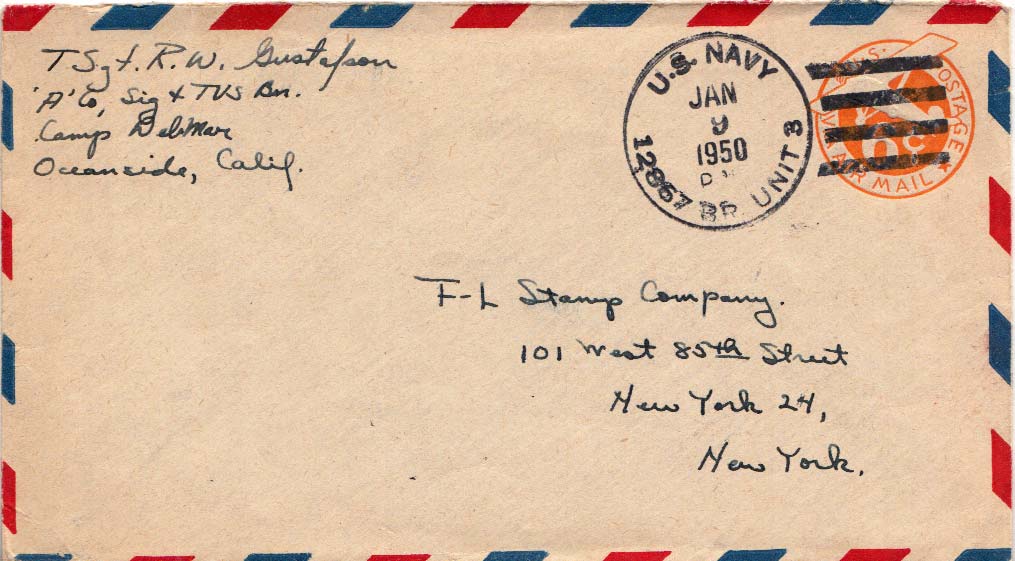 T Sgt. R. W. Gustafson
'A' Co, Sig & TVS Bn.
Camp DelMar
Oceanside, Calif.
U.S. NAVY
JAN
9
1950
12867 BR. UNIT 3
U.S. POSTAGE
VIA AIR MAIL
6¢
F-L Stamp Company.
101 West 85th Street
New York 24,
New York.